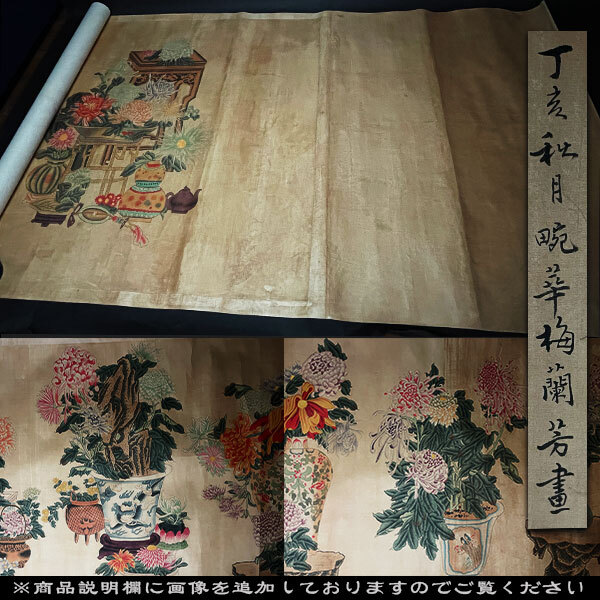 丁亥秋月畹華梅蘭芳畫
※商品説明欄に画像を追加しておりますのでご覧ください